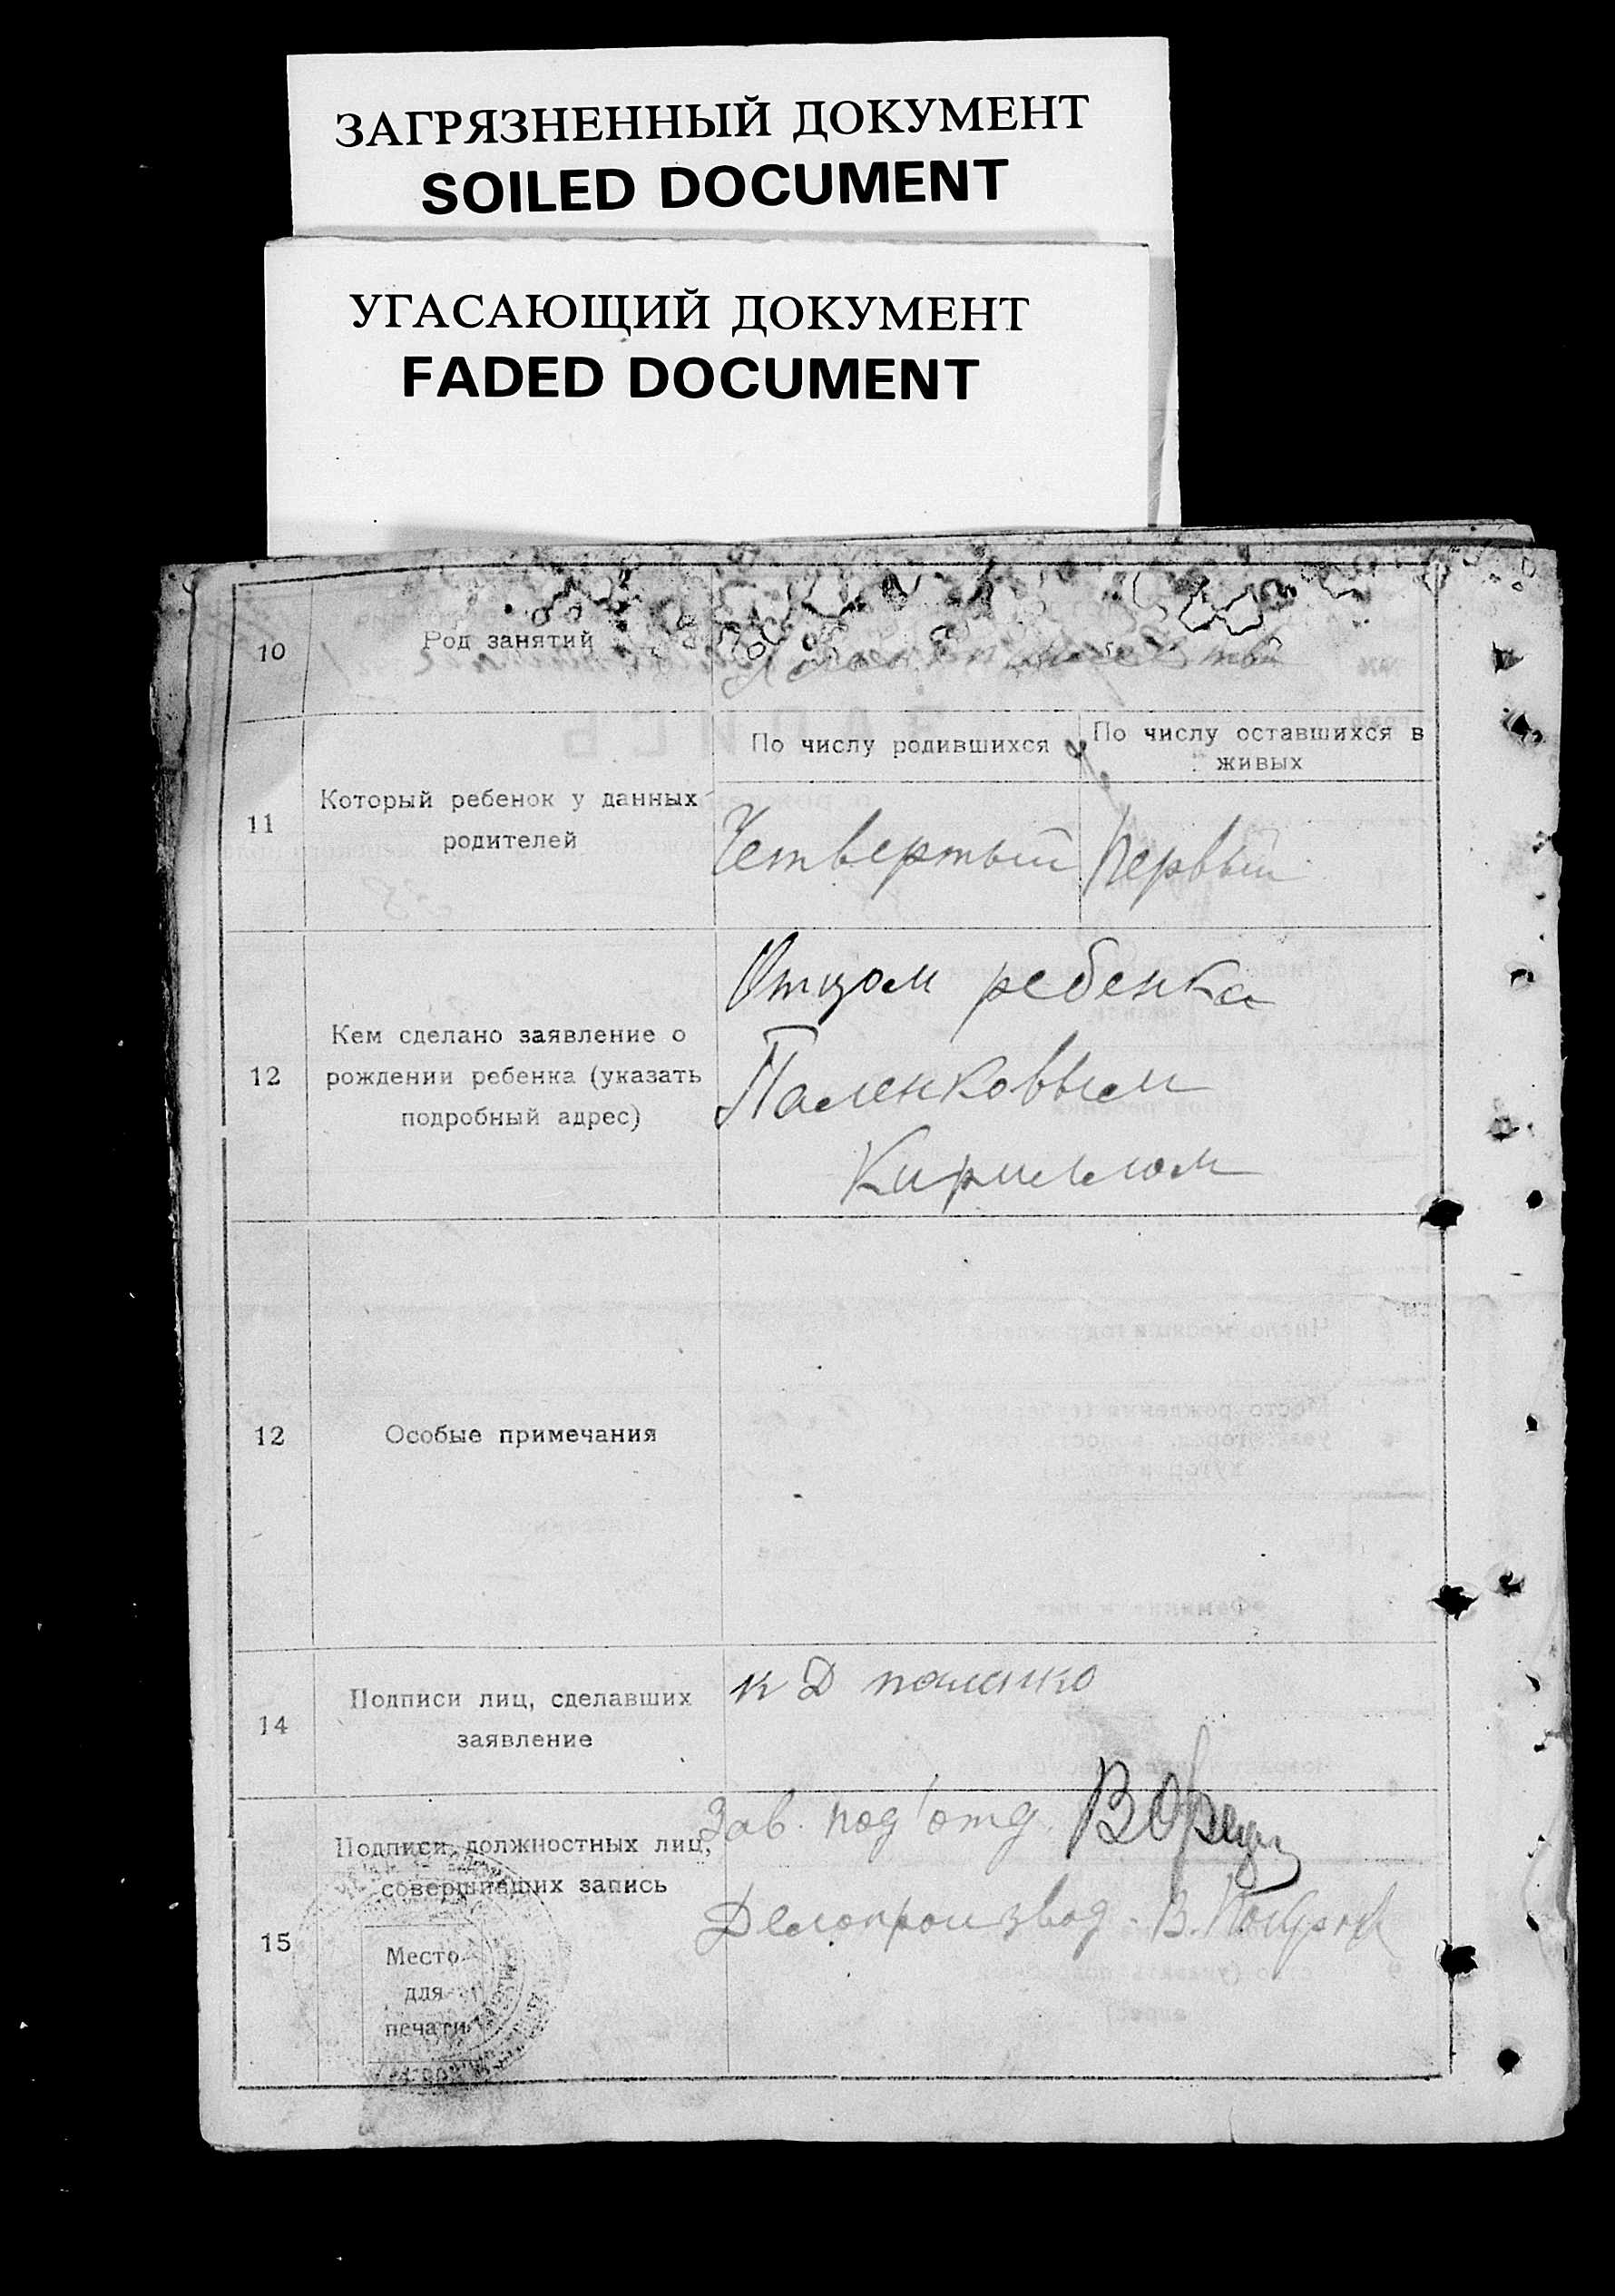 ЗАГРЯЗНЕННЫЙ ДОКУМЕНТ
SOILED DOCUMENT
УГАСАЮЩИЙ ДОКУМЕНТ
FADED DOCUMENT
10
Род занятий
11
Который ребенок у данных
родителей
По числу родившихся
По числу оставшихся в
живых
Четвертый
Первый
12
Кем сделано заявление о
рождении ребенка (указать
подробный адрес)
Отцом ребенка
Паленковым
Кириллом
12
Особые примечания
14
Подписи лиц, сделавших
заявление
К Д
15
Подписи должностных лиц,
совершивших запись
Место
для
печати
Зав. под'отд.
Делопроизвод. В.